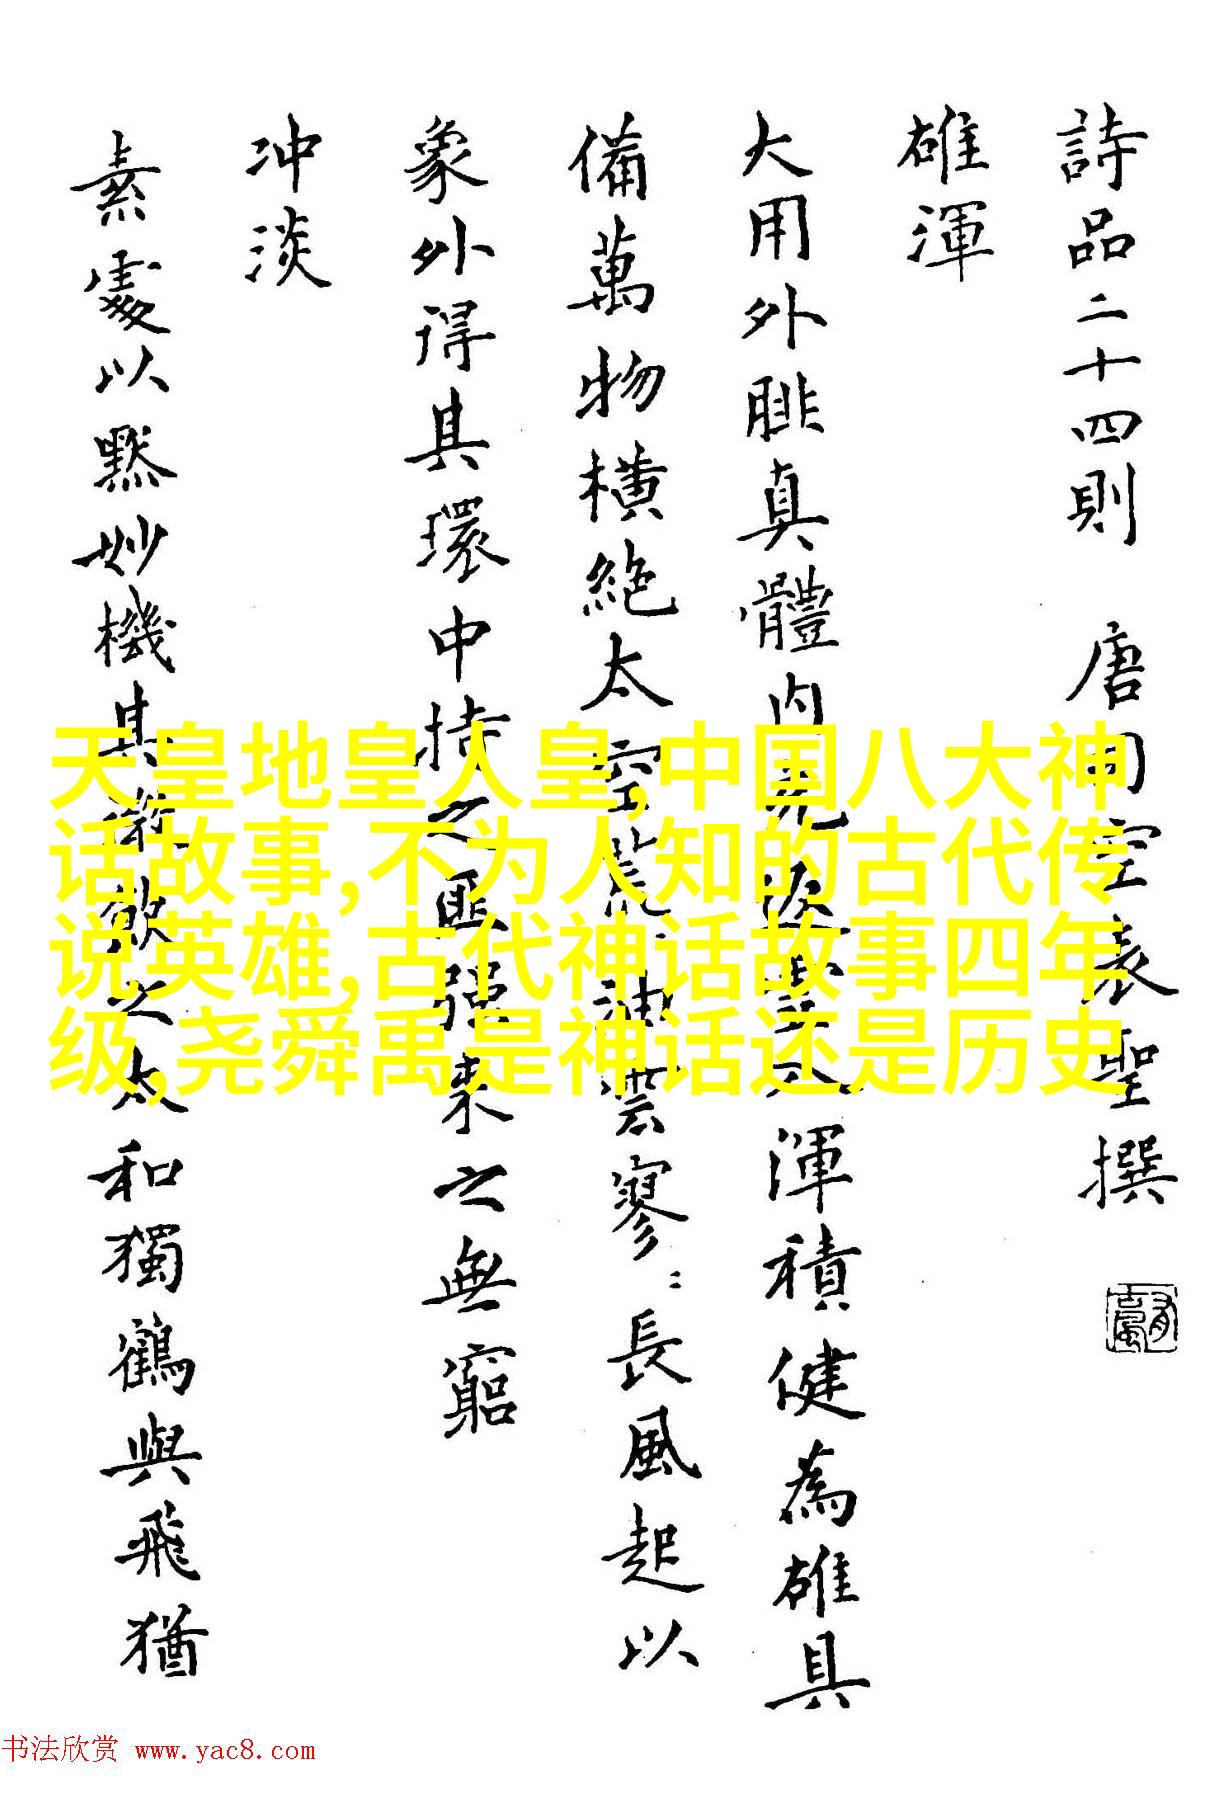 詩品二十四則 唐司空表聖撰
雄渾
大用外腓真體内充返虚入渾積健為雄具
備萬物橫絶太空荒〻油雲寥〻長風超以
象外得其環中持之匪强来之無窮
冲淡
素處以默妙機其微飲之太和獨鶴與飛猶
天皇地皇人皇,中国八大神
话故事,不为人知的古代传
说英雄,古代神话故事四年
级,尧舜禹是神话还是历史
书法欣赏 www.yac8.com